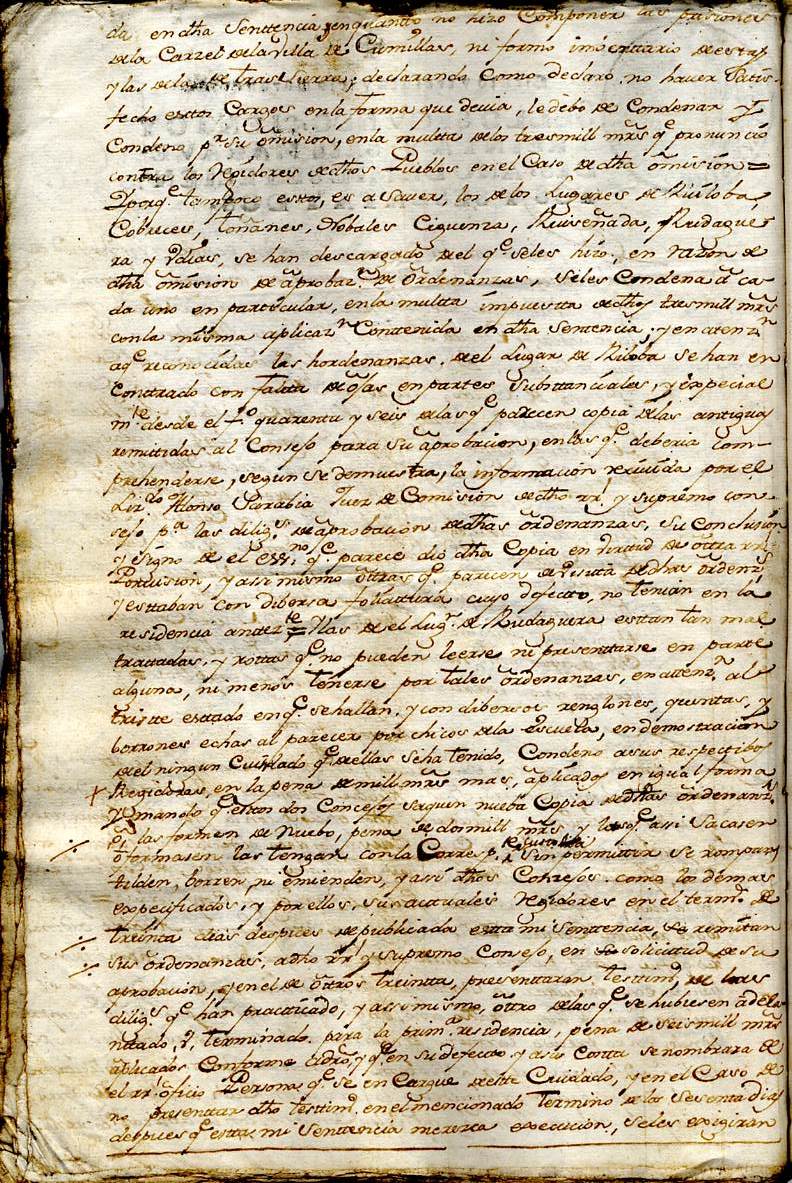 da en dha Senttencia, en quantto no hizo Componer las prisiones
de la Carzel de la Villa de Cumillas, ni formo imbenttario de estas
y las de la de trasLierra; declarando Como declaro no haver Satis-
fecho esttos Cargos en la forma que devia, le debo de Condenar y
Condeno pr. su omision, en la multta de los tresmill mrs. qe. pronuncio
contra los Regidores de dhos Pueblos en el Caso de dha omision =
Y porqe. tampoco esttos, es a Saver, los de los Lugares de Ruiloba,
Cobreces, Toñanes, Nobales Ciguenza, Ruiseñada, Rudague
ra y Udias, se han descargado del qe. seles hizo, en razon de
dha omision de aprobazn. de ordenanzas, Seles Condena a ca-
da uno en partticular, en la multta impuestta de dhos tresmill mrs.
con la misma aplicazn. Conttenida en dha Sentencia; y en atenzn.
aqe. reconocidas las hordenanzas, del Lugar de Ruiloba se han en
conttrado con faltta de ojas en partes Substtanciales, y expecial
mte. desde el fo. quarenta y seis de las qe. parecen copia de las antiguas
remittidas al Consejo para su aprobacion, en las qe. deberia Com-
prehenderse, segun se demuestra, la informacion recivida por el
Lizdo. Alonso Sarabia Juez de Comision de dho rl. y supremo con
sejo pa. las diligs. de aprobacion de dhas ordenanzas, Su Conclusion
y Signo de el essno. qe. parece dio dha Copia en virttud de ottra rl.
Provision, y assi mismo ottras qe. parecen de visitta de dhas ordenzs.
y esttaban con dibersa foliattura cuyo defectto, no tenian en la
residencia antterte. = Y las de el Lugr. de Rudaguera esttan tan mal
trattadas, y rottas qe. no pueden leerse ni presenttarse en parte
alguna, ni menos tenerse por tales ordenanzas, en attenzn. al
tristte esttado en qe. se hallan, y con dibersos renglones, quentas, y
borrones echas al parecer por chicos de la escuela, en demostracion
del ningun Cuidado qe. de ellas seha tenido, Condeno a sus respectibos
Regidores, en la pena de mill mrs. mas, aplicados en igual forma
Y mando qe. esttos dos Concejos saquen nueba Copia de dhas ordenanzs.
o las formen de Nuebo, pena de dosmill mrs. y las qe. assi Sacasen
o formasen las tengan con la Corresp.te custodia Sin permittir se rompan
tilden, borren, ni emienden, y assi dhos Consejos como los demas
expecificados, y por ellos, sus actuales regidores en el termo. de
treintta dias despues de publicada estta mi Senttencia, remittan
sus ordenanzas, a dho rl. y supremo Consejo, en solicittud de su
aprobacion, y en el de ottros treintta, presenttaran testtimo. de las
diligs. qe. han practticado, y assi mismo, ottro de las qe. se hubiesen adela
nttado, y terminado para la primra. residencia, pena de seis mill mrs.
aplicados Conforme a dro. y qe. en su defecto, y a su Costta se nombrara de
el rl. oficio Persona qe. se en Cargue de este Cuidado, y en el Caso de
no presenttar dho testtimo. en el mencionado termino de los Sesentta dias
despues qe. estta mi Senttencia merezca execucion, seles exigiran